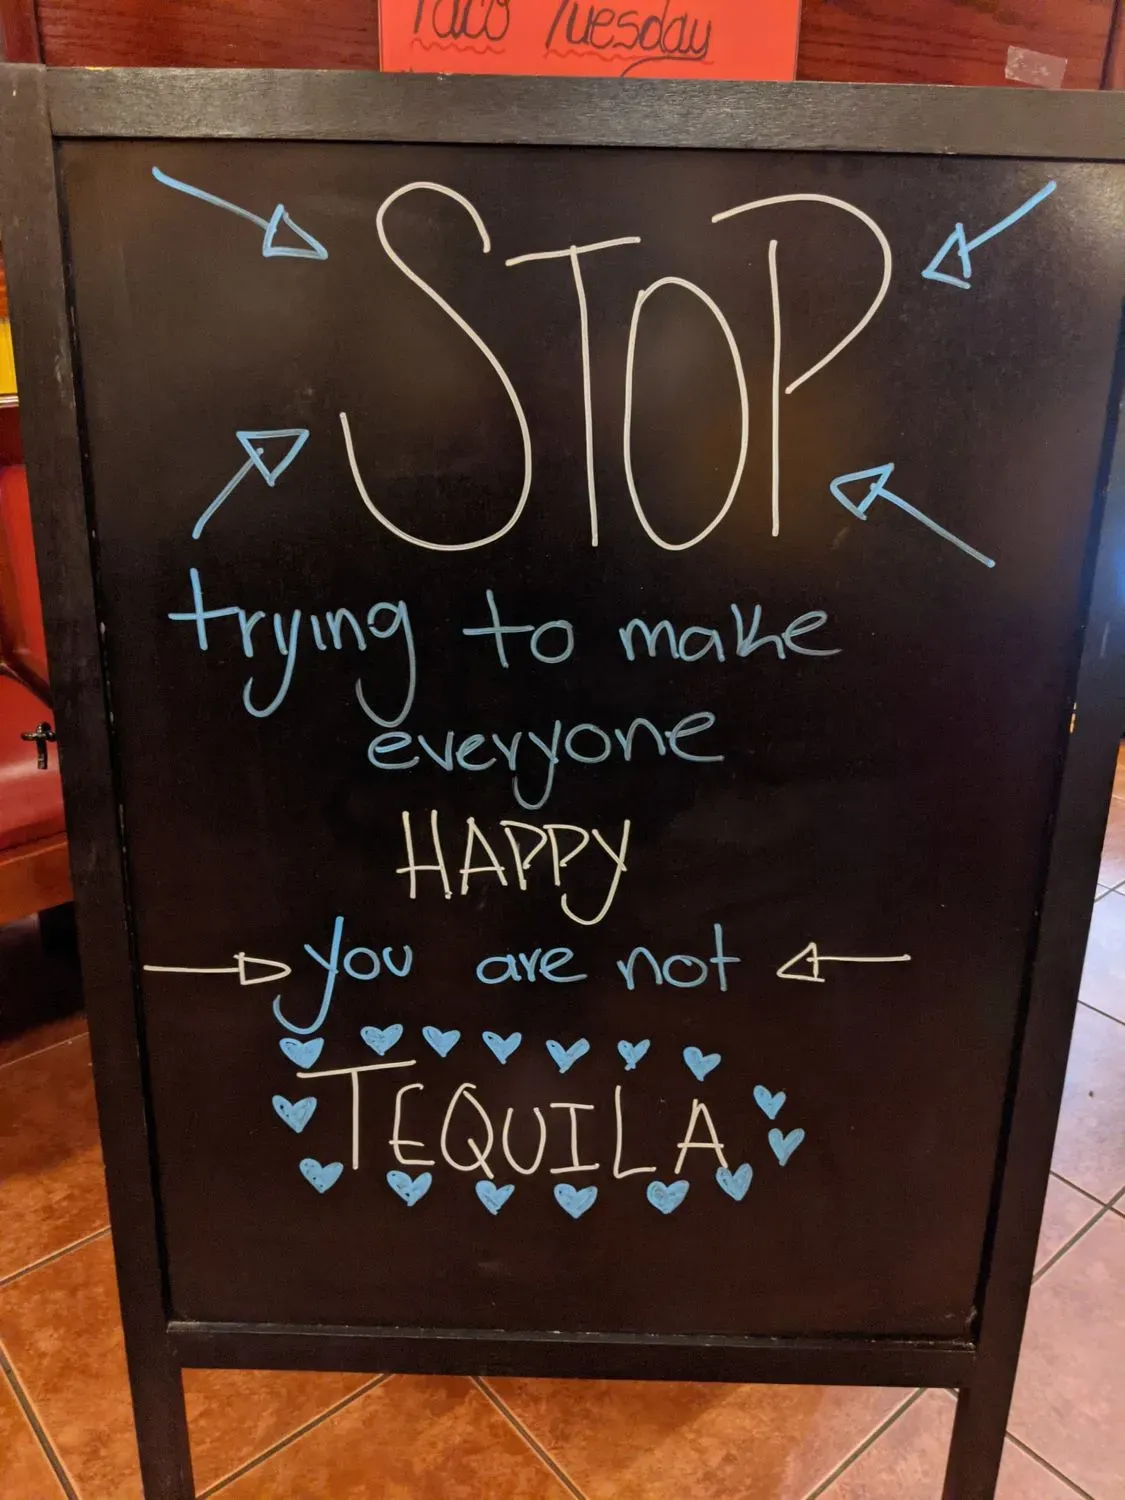 Taco Tuesday
STOP
trying to make
everyone
HAPPY
you are not
TEQUILA